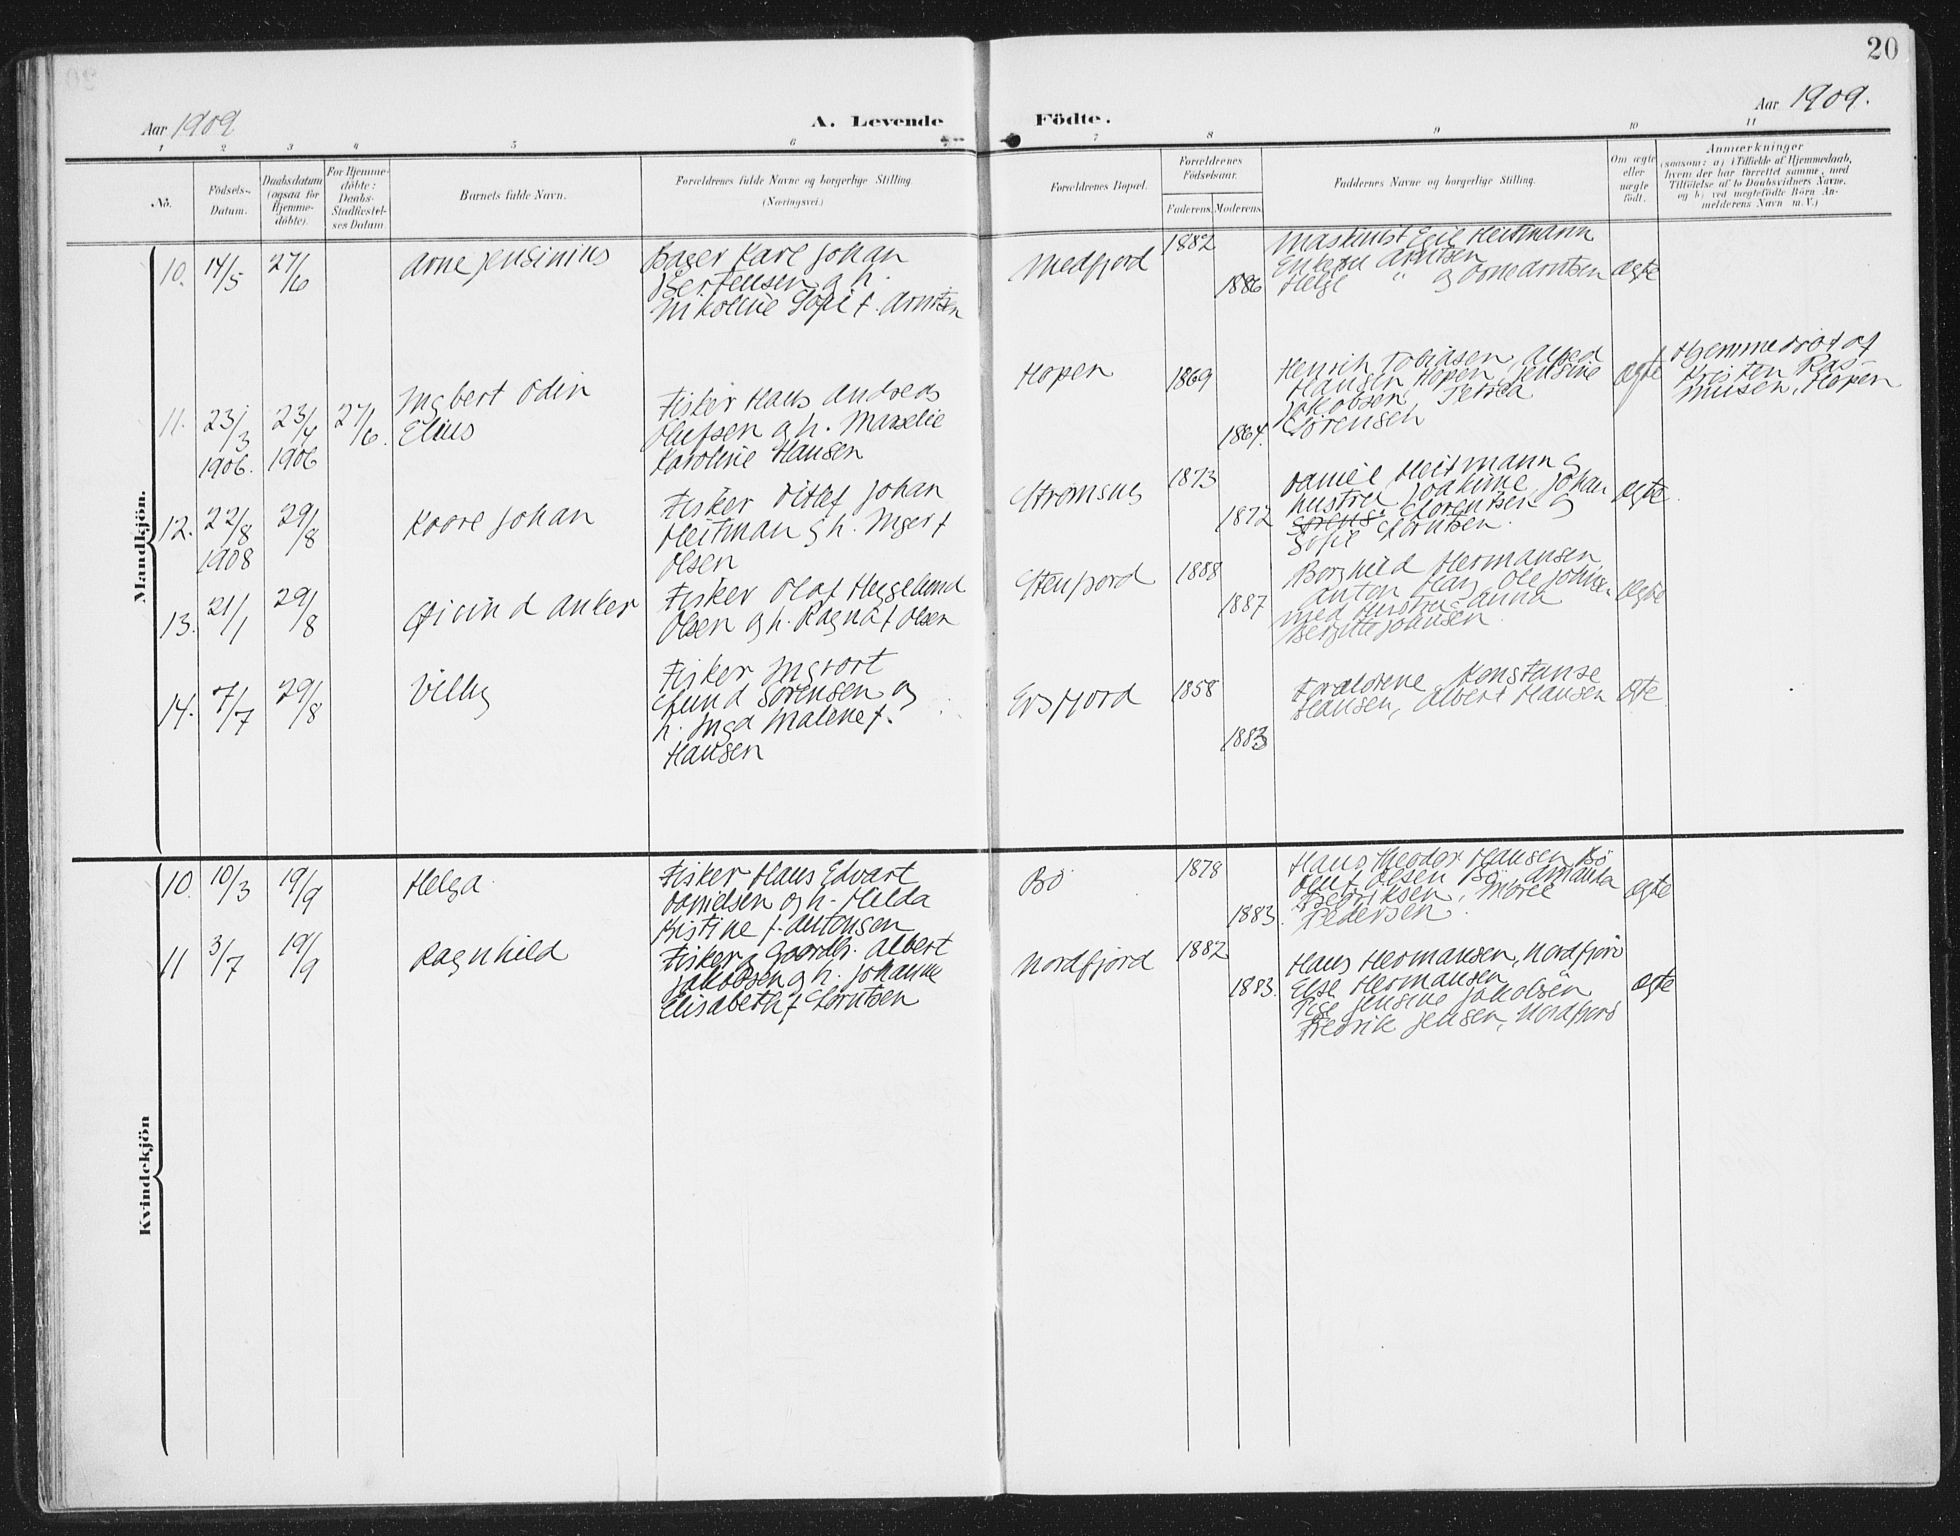 20
Aar 1909
A. Levende
Födte.
Aar 1909.
1 2 3 4 5 6 7 8 9 10 11
No.
Födsels-Datum.
Daabsdatum (ogsaa for Hjemmedöbte).
For Hjemmedöbte: Daabs-Stadfæstelses Datum
Barnets fulde Navn.
Forældrenes fulde Navne og borgerlige Stilling.
(Næringsvei.)
Forældrenes Bopæl.
Forældrenes Födselsaar.
Faderens. Moderens.
Faddernes Navne og borgerlige Stilling.
Om ægte eller uægte födt.
Anmærkninger
(saasom: a) i Tilfælde af Hjemmedaab, hvem der har forrettet samme, med Tilföielse af to Daabsvidners Navne, og b) ved uægtefödte Börn Anmelderens Navn m. V.)
Mandkjön.
10. 14/5 27/6 Arne Jensinius
Bager Karl Johan
Bertensen og h.
Nikoline Sofie f. Arntsen
Medfjord 1882
1886
Egil Heitmann
Enkefru Arntsen
Helge " og Arne Arntsen
ægte
11. 23/3 1906. 23/4 1906 27/6.
Ingbert Odin
Elius
Fisker Hans Andreas
Olufsen og h. Marselie
Karoline Hansen
Hopen 1869
1864.
Henrik Tobiasen, Alfred
Hansen Hopen, Jensine
Jakobsen, Petrea
Sörensen
ægte
Hjemmedöbt af
Kristen Ras-
musen, Hopen
12. 22/8 1908 29/8 Kaare Johan
Fisker Ditlef Johan
Heitman og h. Inger f
Olsen
Strömsnes 1873
1872
Daniel Heitmann og
hustru Joakime, Johan
Lorentsen og
Sofie Lorntsen.
ægte.
13. 21/1 29/8 Öivind Anker
Fisker Olaf Heggelund
Olsen og h. Ragna f Olsen
Stenfjord 1888
1887
Borghild Hermansen
Anton Hay, Ole Johnsen
med Hustru Anna
Bergitte Johnsen.
ægte
14. 7/7 29/8 Villy
Fisker Ingvart
Edlund Sörensen og
h. Inga Maline f.
Hansen
Ersfjord 1858
1883
Forældrene, Konstanse
Hansen, Albert Hansen
ægte
Kvindekjön
10. 10/3 19/9 Helga
Fisker Hans Edvart
Danielsen og h. Hilda
Kristine f. Antonsen
Bö 1878
1883.
Hans Theodor Hansen Bö
Oluf Olsen Bö, Amanda
Fredriksen,
Pedersen.
ægte
11 3/7 19/9 Ragnhild
Fisker og Gaardbr. Albert
Jakobsen og h. Johanne
Elisabeth f Lorntsen
Nordfjord 1882
1883.
Hans Hermansen, Nordfjord
Else Hermansen
Pige Jensine Jakobsen
Fredrik Jensen, Nordfjord
ægte